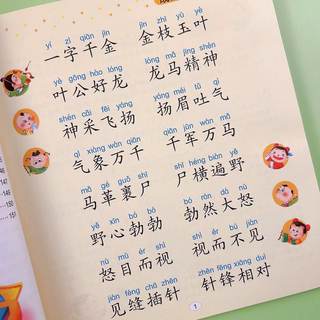 yí zì qiān jīn jīn zhī yù yè
一字千金 金枝玉叶
yè gōng hào lóng lóng mǎ jīng shén
叶公好龙 龙马精神
shén cǎi fēi yáng yáng méi tǔ qì
神采飞扬 扬眉吐气
qì xiàng wàn qiān qiān jūn wàn mǎ
气象万千 千军万马
mǎ gé guǒ shī shī héng biàn yě
马革裹尸 尸横遍野
yě xīn bó bó bó rán dà nù
野心勃勃 勃然大怒
nù mù ér shì shì ér bú jiàn
怒目而视 视而不见
jiàn fèng chā zhēn zhēn fēng xiāng duì
见缝插针 针锋相对
1
145
146
147
150
151